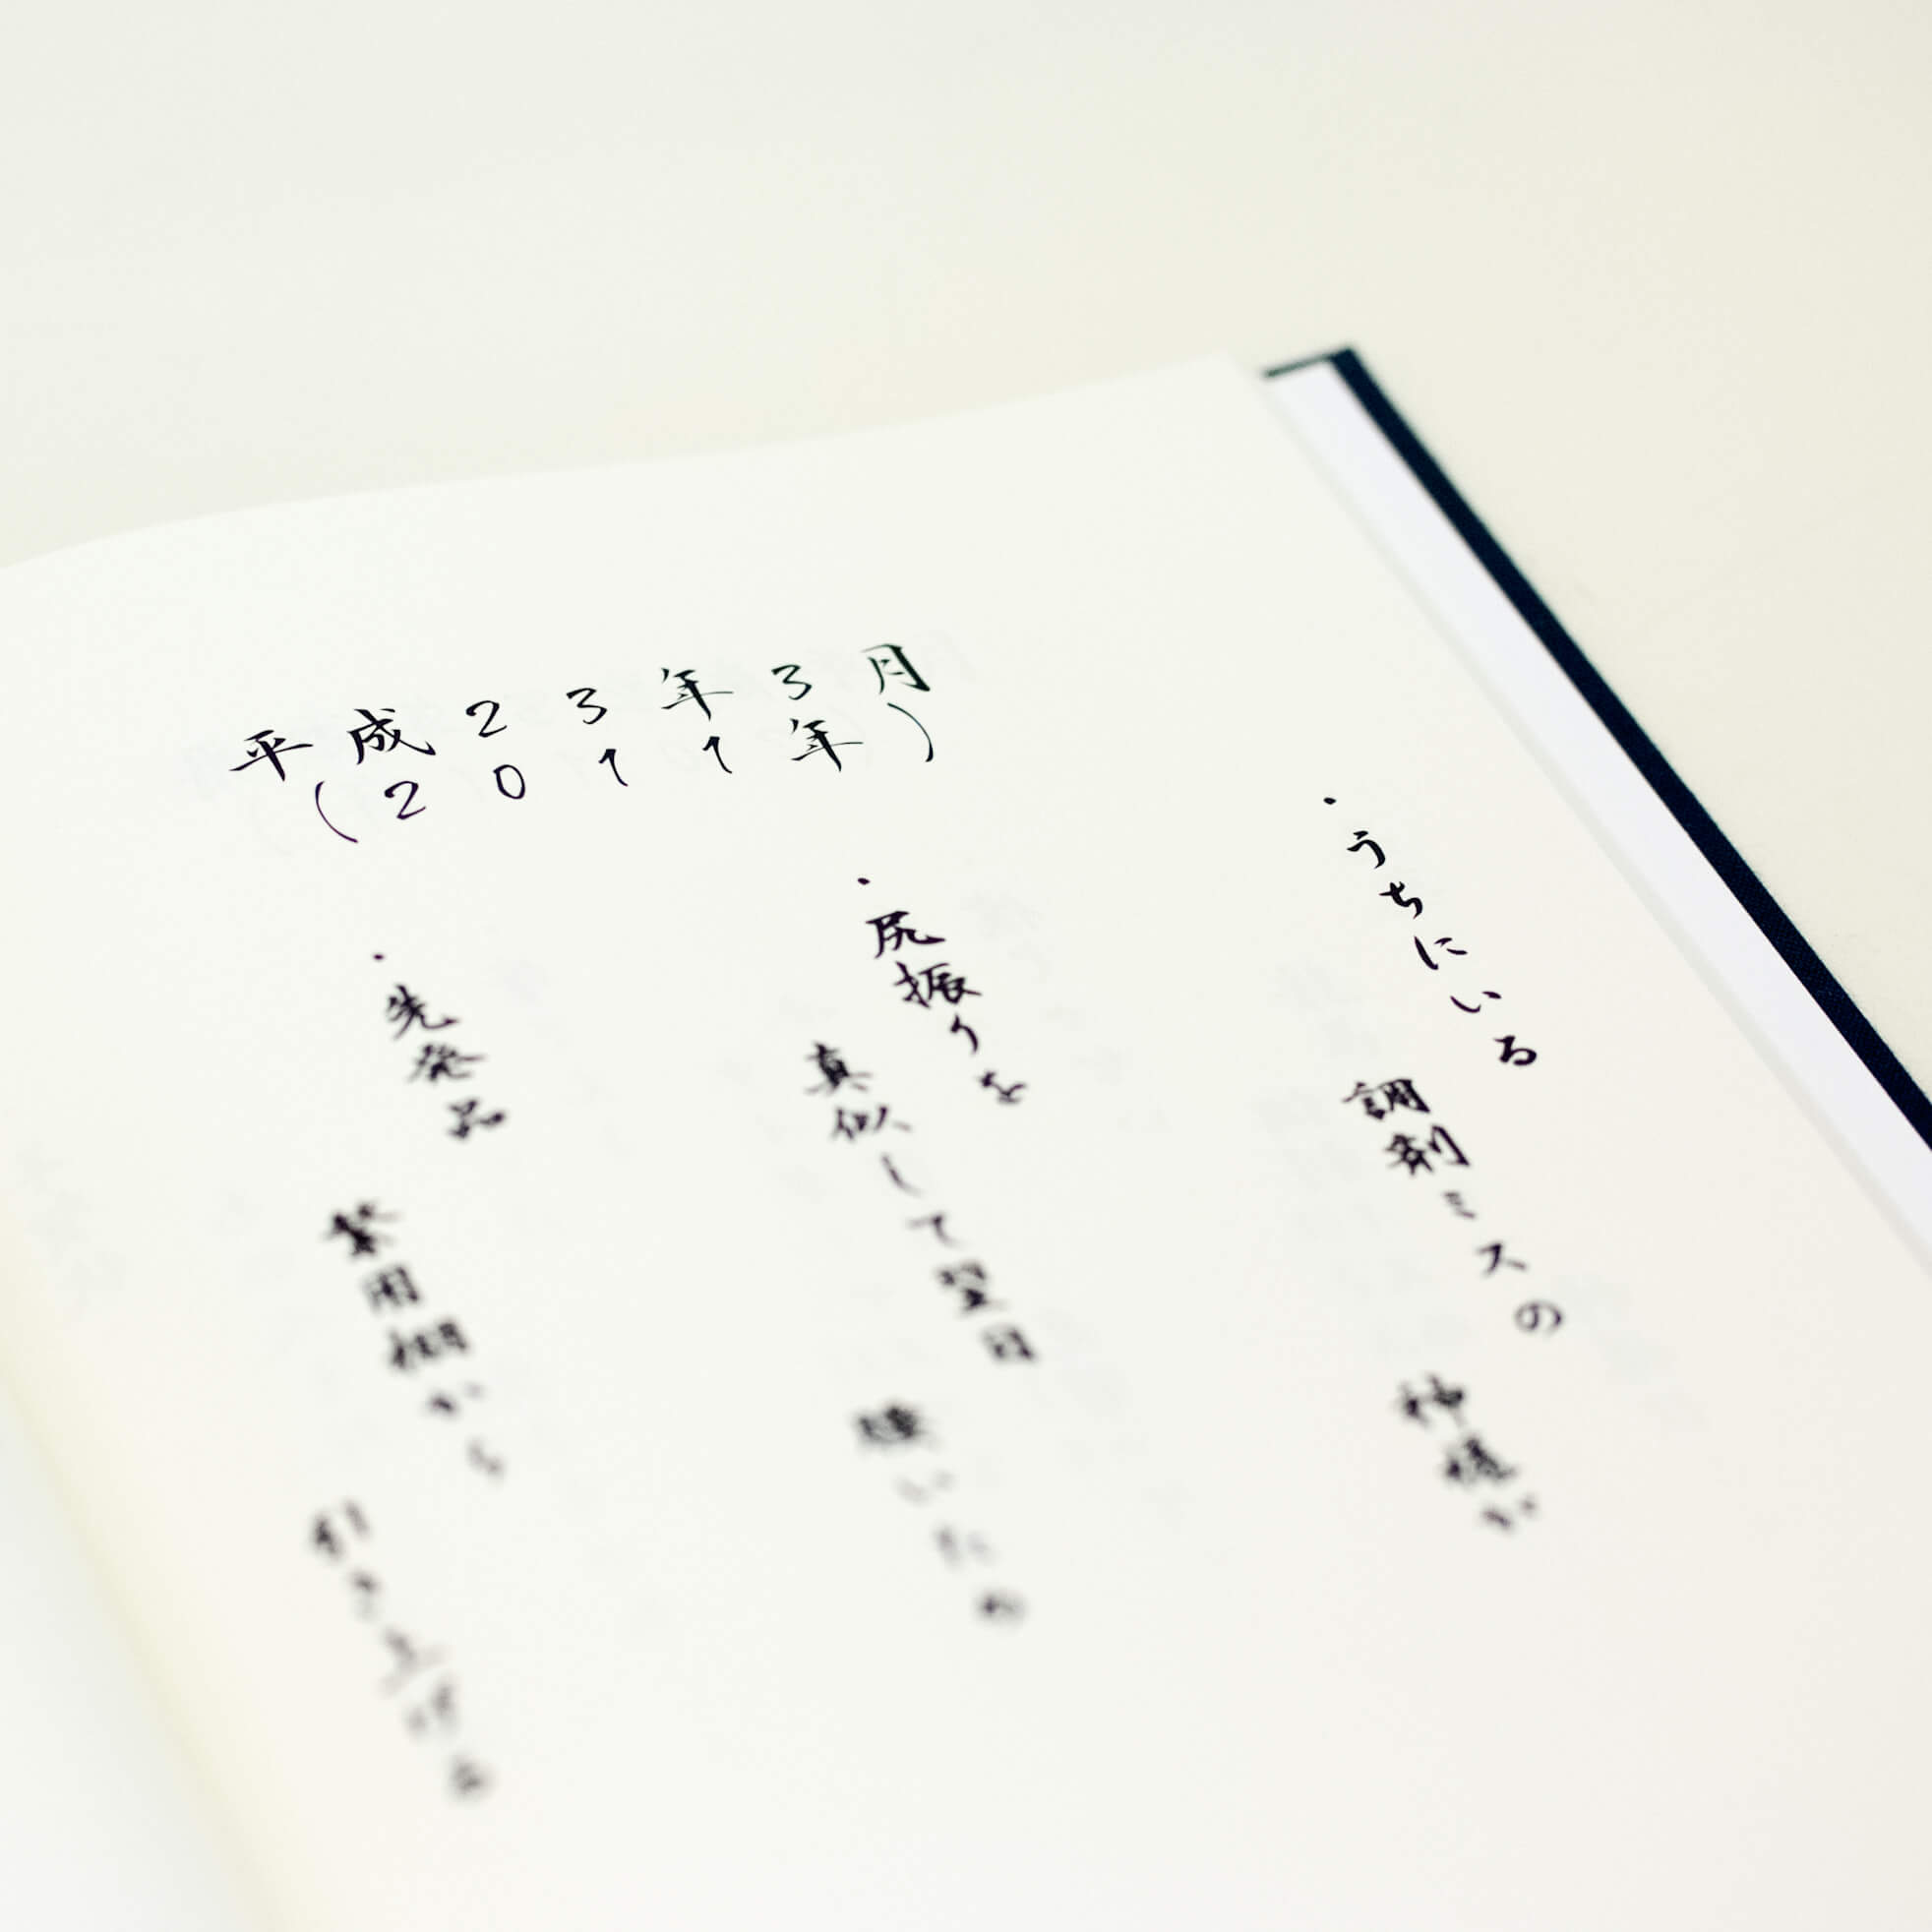 平成23年3月
(2011年)
・うちにいる
調剤ミスの
神様が
・尻振りを
真似して翌日
腰いため
・先発品
繁用棚から
引き上げる